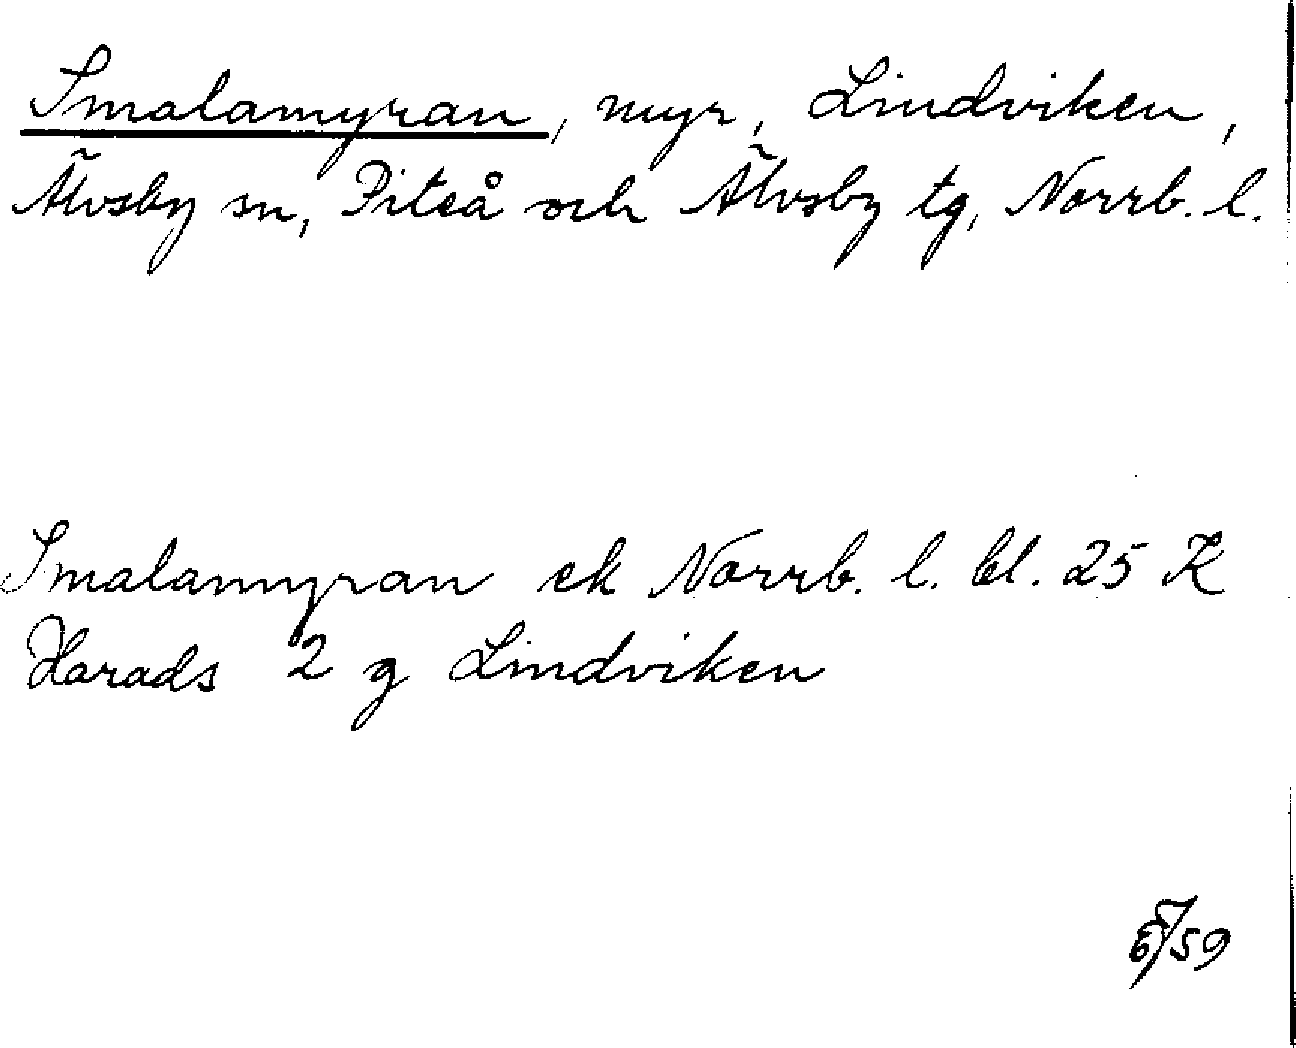 Smalamyran, myr, Lindviken,
Älvsby sn, Piteå och Älvsby tg, Norrb. l.
Smalamyran ek Norrb. l. bl. 25 K
Harads 2 g Lindviken